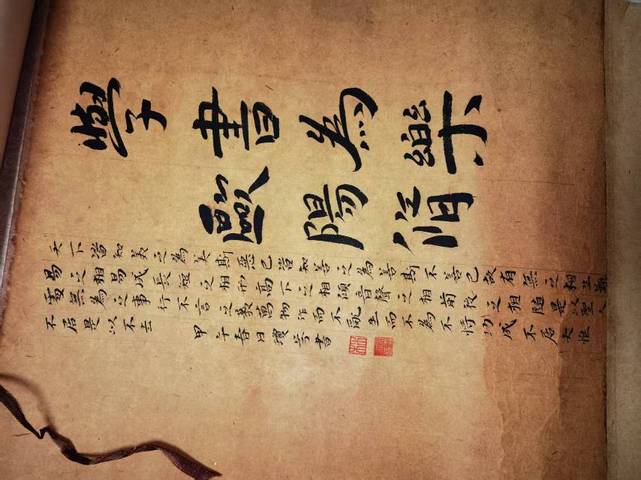 學書為樂
歐陽脩
天下皆知美之為美斯惡已皆知善之為善斯不善已故有無之相生難
易之相成長短之相形高下之相傾音聲之相和前後之相隨是以聖人
處無為之事行不言之教萬物作而不為生而不不恃功成不居夫惟
不居是以不去
甲午春日瓊芳書